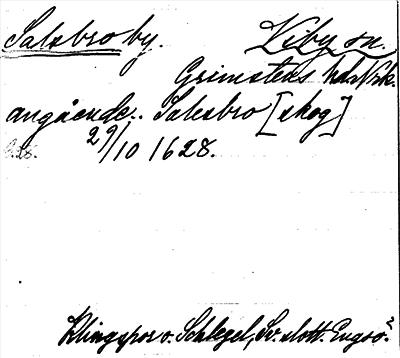 Salsbro by. Viby sn.
Grimstens hd Nrk.
angående. Salesbro [skog]
29/10 1628.
Klingspor o. Schlegel, Sv. slott. Engsö?